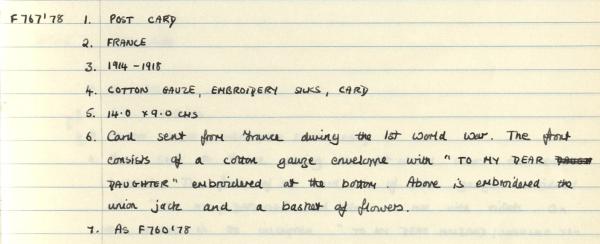 F767'78 1. POST CARD
2. FRANCE
3. 1914-1918
4. COTTON GAUZE, EMBROIDERY SILKS, CARD
5. 14.0 x 9.0 CMS
6. Card sent from France during the 1st World War. The front
consists of a cotton gauze envelope with "TO MY DEAR
DAUGHTER" embroidered at the bottom. Above is embroidered the
union jack and a basket of flowers.
7. AS F760'78